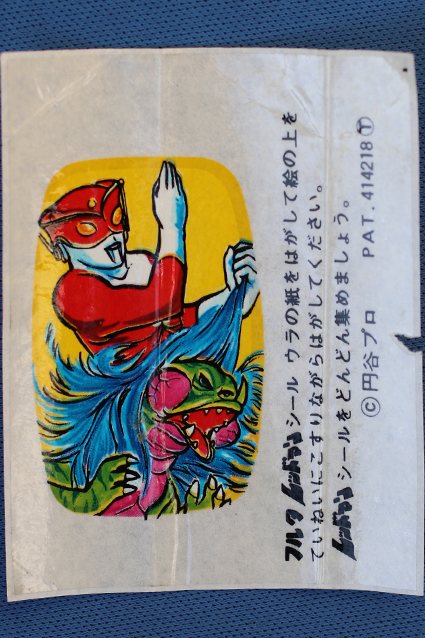 フルタ レッドマン シール ウラの紙をはがして絵の上を
ていねいにこすりながらはがしてください。
レッドマン シールをどんどん集めましょう。
Ⓒ円谷プロ PAT.414218Ⓣ